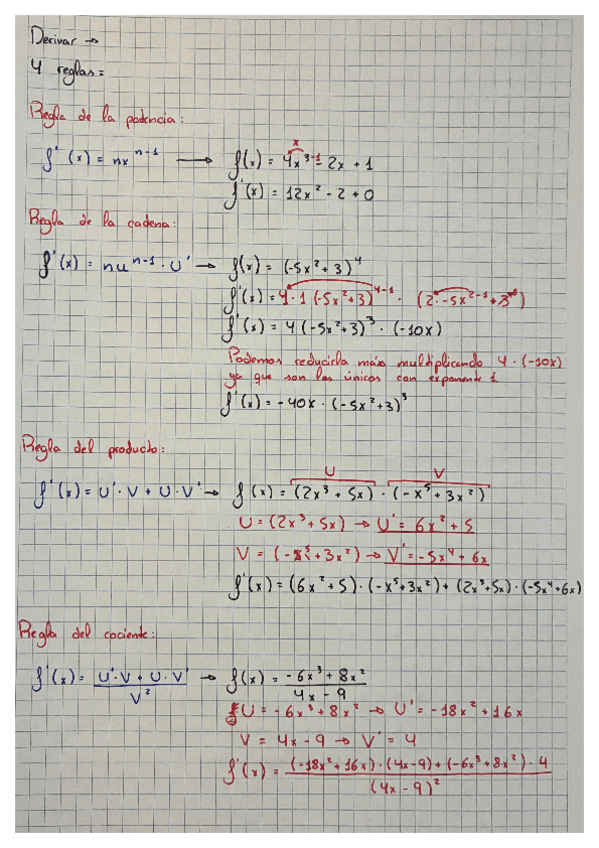 Derivar →
4 reglas:
Regla de la potencia:
f'(x) = nx^(n-1) → f(x) = 4x^(3-1) - 2x + 1
x
f'(x) = 12x² - 2 + 0
Regla de la cadena:
f'(x) = nu^(n-1) · U' → f(x) = (-5x² + 3)⁴
f'(x) = 4 · 1 (-5x² + 3)^(4-1) · (2 · -5x^(2-1) + 3^0)
f'(x) = 4 (-5x² + 3)³ · (-10x)
Podemos reducirla más multiplicando 4 · (-10x)
ya que son los únicos con exponente 1
f'(x) = -40x · (-5x² + 3)³
Regla del producto:
U V
f'(x) = U' · V + U · V' → f(x) = (2x³ + 5x) · (-x⁵ + 3x²)
U = (2x³ + 5x) → U' = 6x² + 5
V = (-x⁵ + 3x²) → V' = -5x⁴ + 6x
f'(x) = (6x² + 5) · (-x⁵ + 3x²) + (2x³ + 5x) · (-5x⁴ + 6x)
Regla del cociente:
f'(x) = (U' · V + U · V') / V² → f(x) = (-6x³ + 8x²) / (4x - 9)
U = -6x³ + 8x² → U' = -18x² + 16x
V = 4x - 9 → V' = 4
f'(x) = ((-18x² + 16x) · (4x - 9) + (-6x³ + 8x²) · 4) / (4x - 9)²